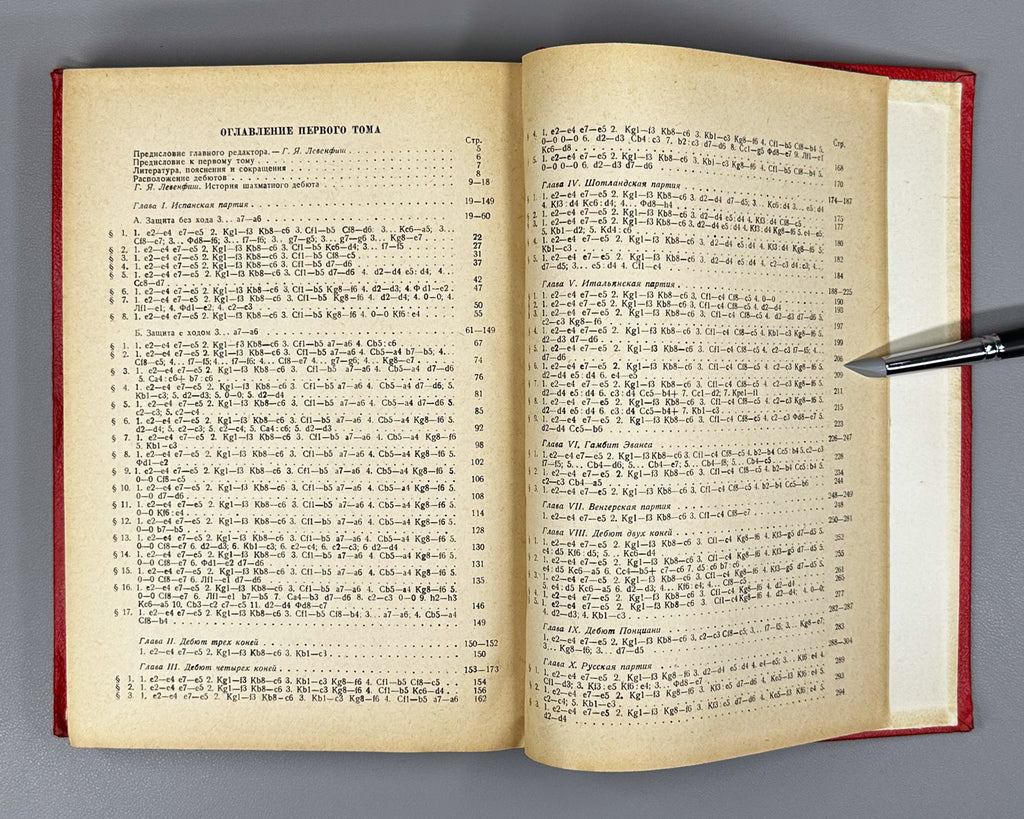 ОГЛАВЛЕНИЕ ПЕРВОГО ТОМА
Стр.
Предисловие главного редактора. — Г. Я. Левенфиш 5
Предисловие к первому тому 6
Литература, пояснения и сокращения 7
Расположение дебютов 8
Г. Я. Левенфиш. История шахматного дебюта 9—18
Глава I. Испанская партия 19—149
А. Защита без хода 3... a7—a6 19—60
§ 1. 1. e2—e4 e7—e5 2. Kg1—f3 Kb8—c6 3. Cf1—b5 Cf8—d6: 3... Kc6—a5; 3...
Cf8—e7; 3... Фd8—f6; 3... f7—f6; 3.. g7—g5; 3... g7—g6 3... Kg8—e7 22
§ 2. 1. e2—e4 e7—e5 2. Kg1—f3 Kb8—c6 3. Cf1—b5 Kc6—d4; 3... f7—f5 27
§ 3. 1. e2—e4 e7—e5 2. Kg1—f3 Kb8—c6 3. Cf1—b5 Cf8—c5 31
§ 4. 1. e2—e4 e7—e5 2. Kg1—f3 Kb8—c6 3. Cf1—b5 d7—d6 37
§ 5. 1. e2—e4 e7—e5 2. Kg1—f3 Kb8—c6 3. Cf1—b5 d7—d6 4. d2—d4 e5:d4; 4...
Cc8—d7 42
§ 6. 1. e2—e4 e7—e5 2. Kg1—f3 Kb8—c6 3. Cf1—b5 Kg8—f6 4. d2—d3; 4. Фd1—e2 47
§ 7. 1. e2—e4 e7—e5 2. Kg1—f3 Kb8—c6 3. Cf1—b5 Kg8—f6 4. d2—d4; 4. 0—0; 4.
Лf1—e1; 4. Фd1—e2; 4. c2—c3 50
§ 8. 1. e2—e4 e7—e5 2. Kg1—f3 Kb8—c6 3. Cf1—b5 Kg8—f6 4. 0—0 Kf6:e4 55
Б. Защита с ходом 3... a7—a6 61—149
§ 1. 1. e2—e4 e7—e5 2. Kg1—f3 Kb8—c6 3. Cf1—b5 a7—a6 4. Cb5:c6 67
§ 2. 1. e2—e4 e7—e5 2. Kg1—f3 Kb8—c6 3. Cf1—b5 a7—a6 4. Cb5—a4 b7—b5; 4...
Cf8—c5; 4... f7—f5; 4... f7—f6; 4... Cf8—e7 4... g7—g6; 4... Kg8—e7 74
§ 3. 1. e2—e4 e7—e5 2. Kg1—f3 Kb8—c6 3. Cf1—b5 a7—a6 4. Cb5—a4 d7—d6
5. Ca4:c6+ b7:c6 76
§ 4. 1. e2—e4 e7—e5 2. Kg1—f3 Kb8—c6 3. Cf1—b5 a7—a6 4. Cb5—a4 d7—d6; 5.
Kb1—c3; 5. d2—d3; 5. 0—0; 5. d2—d4 81
§ 5. 1. e2—e4 e7—e5 2. Kg1—f3 Kb8—c6 3. Cf1—b5 a7—a6 4. Cb5—a4 d7—d6 5.
c2—c3; 5. c2—c4 85
§ 6. 1. e2—e4 e7—e5 2. Kg1—f3 Kb8—c6 3. Cf1—b5 a7—a6 4. Cb5—a4 Kg8—f6 5.
d2—d4; 5. c2—c3; 5. c2—c4; 5. Ca4:c6; 5. d2—d3 92
§ 7. 1. e2—e4 e7—e5 2. Kg1—f3 Kb8—c6 3. Cf1—b5 a7—a6 4. Cb5—a4 Kg8—f6
5. Kb1—c3 98
§ 8. 1. e2—e4 e7—e5 2. Kg1—f3 Kb8—c6 3. Cf1—b5 a7—a6 4. Cb5—a4 Kg8—f6 5.
Фd1—e2 102
§ 9. 1. e2—e4 e7—e5 2. Kg1—f3 Kb8—c6 3. Cf1—b5 a7—a6 4. Cb5—a4 Kg8—f6 5.
0—0 Cf8—c5 106
§ 10. 1. e2—e4 e7—e5 2. Kg1—f3 Kb8—c6 3. Cf1—b5 a7—a6 4. Cb5—a4 Kg8—f6 5.
0—0 d7—d6 108
§ 11. 1. e2—e4 e7—e5 2. Kg1—f3 Kb8—c6 3. Cf1—b5 a7—a6 4. Cb5—a4 Kg8—f6 5.
0—0 Kf6:e4 114
§ 12. 1. e2—e4 e7—e5 2. Kg1—f3 Kb8—c6 3. Cf1—b5 a7—a6 4. Cb5—a4 Kg8—f6 5.
0—0 b7—b5 128
§ 13. 1. e2—e4 e7—e5 2. Kg1—f3 Kb8—c6 3. Cf1—b5 a7—a6 4. Cb5—a4 Kg8—f6 5.
0—0 Cf8—e7 6. d2—d3; 6. Kb1—c3; 6. c2—c4; 6. c2—c3; 6 d2—d4 130
§ 14. 1. e2—e4 e7—e5 2. Kg1—f3 Kb8—c6 3. Cf1—b5 a7—a6 4. Cb5—a4 Kg8—f6 5.
0—0 Cf8—e7 6. Фd1—e2 d7—d6 131
§ 15. 1. e2—e4 e7—e5 2. Kg1—f3 Kb8—c6 3. Cf1—b5 a7—a6 4. Cb5—a4 Kg8—f6 5.
0—0 Cf8—e7 6. Лf1—e1 d7—d6 135
§ 16. 1. e2—e4 e7—e5 2. Kg1—f3 Kb8—c6 3. Cf1—b5 a7—a6 4. Cb5—a4 Kg8—f6 5.
0—0 Cf8—e7 6. Лf1—e1 b7—b5 7. Ca4—b3 d7—d6 8. c2—c3 0—0 9. h2—h3
Kc6—a5 10. Cb3—c2 c7—c5 11. d2—d4 Фd8—c7 146
§ 17. 1. e2—e4 e7—e5 2. Kg1—f3 Kb8—c6 3. Cf1—b5 Cf8—b4; 3... a7—a6 4. Cb5—a4
Cf8—b4 149
Глава II. Дебют трех коней 150—152
1. e2—e4 e7—e5 2. Kg1—f3 Kb8—c6 3. Kb1—c3 150
Глава III. Дебют четырех коней 153—173
§ 1. 1. e2—e4 e7—e5 2. Kg1—f3 Kb8—c6 3. Kb1—c3 Kg8—f6 4. Cf1—b5 Cf8—c5 154
§ 2. 1. e2—e4 e7—e5 2. Kg1—f3 Kb8—c6 3. Kb1—c3 Kg8—f6 4. Cf1—b5 Kc6—d4 156
§ 3. 1. e2—e4 e7—e5 2. Kg1—f3 Kb8—c6 3. Kb1—c3 Kg8—f6 4. Cf1—b5 a7—a6 162
Стр.
§ 4. 1. e2—e4 e7—e5 2. Kg1—f3 Kb8—c6 3. Kb1—c3 Kg8—f6 4. Cf1—b5 Cf8—b4 5.
0—0 0—0 6. d2—d3 Cb4:c3 7. b2:c3 d7—d6 8. Cc1—g5 Фd8—e7 9. Лf1—e1
Kc6—d8 168
5. 1. e2—e4 e7—e5 2. Kg1—f3 Kb8—c6 3. Kb1—c3 Kg8—f6 4. Cf1—b5 Cf8—b4 5.
0—0 0—0 6. d2—d3 d7—d6 170
Глава IV. Шотландская партия 174—187
1. 1. e2—e4 e7—e5 2. Kg1—f3 Kb8—c6 3. d2—d4 d7—d5; 3... Kc6:d4 3... e5:d4
4. Kf3:d4 Kc6:d4; 4... Фd8—h4 175
2. 1. e2—e4 e7—e5 2. Kg1—f3 Kb8—c6 3. d2—d4 e5:d4 4. Kf3:d4 Cf8—c5 177
3. 1. e2—e4 e7—e5 2. Kg1—f3 Kb8—c6 3. d2—d4 e5:d4 4. Kf3:d4 Kg8—f6 5. e4—e5;
5. Kb1—d2; 5. Kd4:c6 180
4. 1. e2—e4 e7—e5 2. Kg1—f3 Kb8—c6 3. d2—d4 e5:d4 4. Kf3:d4 Kg8—f6 5.
Kb1—c3 182
5. 1. e2—e4 e7—e5 2. Kg1—f3 Kb8—c6 3. d2—d4 e5:d4 4. c2—c3 d4:c3; 4...
d7—d5; 3... e5:d4 4. Cf1—c4 184
Глава V. Итальянская партия 188—225
1. 1. e2—e4 e7—e5 2. Kg1—f3 Kb8—c6 3. Cf1—c4 Cf8—c5 4. 0—0 190
2. 1. e2—e4 e7—e5 2. Kg1—f3 Kb8—c6 3. Cf1—c4 Cf8—c5 4. d2—d4 193
3. 1. e2—e4 e7—e5 2. Kg1—f3 Kb8—c6 3. Cf1—c4 Cf8—c5 4. d2—d3 d7—d6 5.
c2—c3 Kg8—f6 197
4. 1. e2—e4 e7—e5 2. Kg1—f3 Kb8—c6 3. Cf1—c4 Cf8—c5 4. Kb1—c3 Kg8—f6 5.
d2—d3 d7—d6 199
5. 1. e2—e4 e7—e5 2. Kg1—f3 Kb8—c6 3. Cf1—c4 Cf8—c5 4. c2—c3 f7—f5; 4...
d7—d6 206
6. 1. e2—e4 e7—e5 2. Kg1—f3 Kb8—c6 3. Cf1—c4 Cf8—c5 4. c2—c3 Kg8—f6 5.
d2—d4 e5:d4 6. e4—e5 209
7. 1. e2—e4 e7—e5 2. Kg1—f3 Kb8—c6 3. Cf1—c4 Cf8—c5 4. c2—c3 Kg8—f6 5.
d2—d4 e5:d4 6. c3:d4 Cc5—b4+ 7. Cc1—d2; 7. Kpe1—f1 211
8. 1. e2—e4 e7—e5 2. Kg1—f3 Kb8—c6 3. Cf1—c4 Cf8—c5 4. c2—c3 Kg8—f6 5.
d2—d4 e5:d4 6. c3:d4 Cc5—b4+ 7. Kb1—c3 215
9. 1. e2—e4 e7—e5 2. Kg1—f3 Kb8—c6 3. Cf1—c4 Cf8—c5 4. c2—c3 Фd8—e7 5.
d2—d4 Cc5—b6 223
Глава VI, Гамбит Эванса 226—247
1. 1. e2—e4 e7—e5 2. Kg1—f3 Kb8—c6 3. Cf1—c4 Cf8—c5 4. b2—b4 Cc5:b4 5. c2—c3
f7—f5; 5... Cb4—d6; 5... Cb4—e7; 5... Cb4—f8; 5... Cb4—c5 228
2. 1. e2—e4 e7—e5 2. Kg1—f3 Kb8—c6 3. Cf1—c4 Cf8—c5 4. b2—b4 Cc5:b4 5.
c2—c3 Cb4—a5 234
3. 1. e2—e4 e7—e5 2. Kg1—f3 Kb8—c6 3. Cf1—c4 Cf8—c5 4. b2—b4 Cc5—b6 244
Глава VII. Венгерская партия 248—249
1. e2—e4 e7—e5 2. Kg1—f3 Kb8—c6 3. Cf1—c4 Cf8—e7 248
Глава VIII. Дебют двух коней 250—281
1. 1. e2—e4 e7—e5 2. Kg1—f3 Kb8—c6 3. Cf1—c4 Kg8—f6 4. Kf3—g5 d7—d5 5.
e4:d5 Kf6:d5; 5... Kc6—d4 252
2. 1. e2—e4 e7—e5 2. Kg1—f3 Kb8—c6 3. Cf1—c4 Kg8—f6 4. Kf3—g5 d7—d5
5. e4:d5 Kc6—a5 6. Cc4—b5+ c7—c6 7. d5:c6 b7:c6 255
3. 1. e2—e4 e7—e5 2. Kg1—f3 Kb8—c6 3. Cf1—c4 Kg8—f6 4. Kf3—g5 d7—d5
5. e4:d5 Kc6—a5 6. d2—d3; 4... Kf6:e4; 4... Cf8—c5 261
1. e2—e4 e7—e5 2. Kg1—f3 Kb8—c6 3. Cf1—c4 Kg8—f6 4. d2—d4 265
1. e2—e4 e7—e5 2. Kg1—f3 Kb8—c6 3. Cf1—c4 Kg8—f6 4. d2—d4; 4. 0—0;
4. d2—d3; 4. Kb1—c3 277
Глава IX. Дебют Понциани 282—287
1. e2—e4 e7—e5 2. Kg1—f3 Kb8—c6 3. c2—c3 Cf8—c5; 3... f7—f5; 3... Kg8—e7;
3... Kg8—f6; 3... d7—d5 283
Глава X. Русская партия 288—304
1. 1. e2—e4 e7—e5 2. Kg1—f3 Kg8—f6 3. d2—d4 e5:d4 4. e4—e5; 3... Kf6:e4 4.
Cf1—d3; 3. Kf3:e5 Kf6:e4; 3... Фd8—e7 289
2. 1. e2—e4 e7—e5 2. Kg1—f3 Kg8—f6 3. Kf3:e5 d7—d6 4. Ke5—f3 Kf6:e4 5.
c2—c4; 5. Kb1—c3 293
3. 1. e2—e4 e7—e5 2. Kg1—f3 Kg8—f6 3. Kf3:e5 d7—d6 4. Ke5—f3 Kf6:e4 5.
d2—d4 294